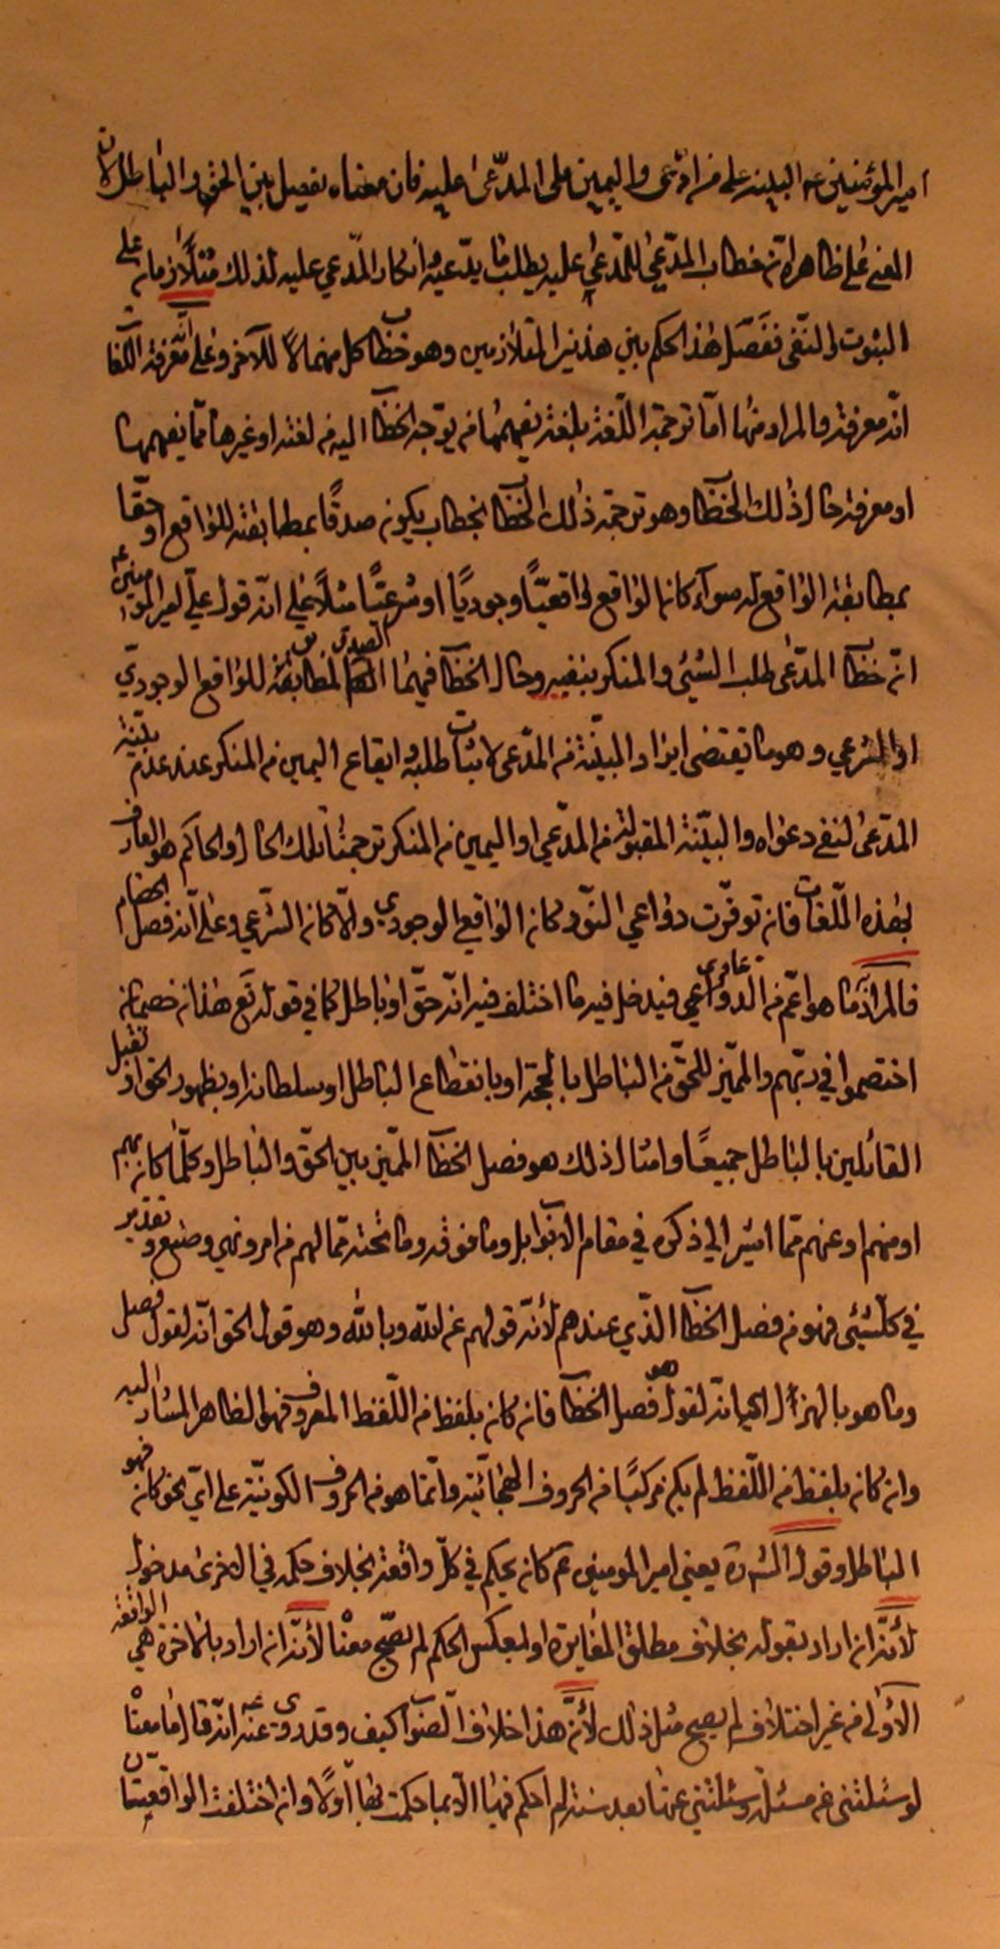 امير المؤمنين عم البينة على من ادّعى واليمين على المدّعى عليه فان معناه يفصل بين الحق والباطل لان
المعنى على ظاهره انّ خطاب المدّعي للمدّعى عليه بطلب ما يدّعيه وانكار المدّعى عليه لذلك متلازمان على
الثبوت والنّفى ففصَل هذا الحكم بين هذين المتلازمين وهو خطاب كل منهما للآخر وعلى معرفة اللّغات
انّه معرفة والمراد منها امّا ترجمة اللّغة بلغة يفهمها من يتوجه الخطاب اليه من لغته او غيرها ممّا يفهمها
او معرفة حال ذلك الخطاب وهو ترجمة ذلك الخطاب بخطاب يكون صدقًا بمطابقته للواقع او حقّا
بمطابقة الواقع له سواء كان الواقع واقعيّا وجوديّا او شرعيّا مثلاً على انّه قول علي امير المؤمنين عم
انّ خطاب المدّعى طلب الشيء والمنكر بنفيه وحال الخطاب فيهما الصدق لمطابقته للواقع الوجوديّ
او الشرعي وهو ما يقتضى ايراد البيّنة من المدّعى لاثبات طلبه وايقاع اليمين من المنكر عند عدم بيّنة
المدّعى لنفى دعواه والبيّنة المقبولة من المدّعي او اليمين من المنكر ترجمة تلك الحال والحاكم هو العارف
بهذه اللّغات فان توفّرت دواعي كان الواقع الوجودي والّا كان الشرعي وعلى انّه فصل الخصام
فالمراد ما هو اعم من الدّعاوى فيدخل فيه ما اختلف فيه انّه حقّ او باطل كما في قوله تع هذان خصمان
اختصموا في ربّهم والمميّز للحقّ من الباطل بالحجة او بانقطاع الباطل او سلطانه او بظهور الحق او
القائلين بالباطل جميعًا وامثال ذلك هو فصل الخطاب المميّز بين الحقّ والباطل وكلّما كان بهم
او منهم او عنهم ممّا اشير الي ذكره في مقام الابواب بل وما فوقه وما تحته ممّا لهم من امر ونهي وصنع وتقدير
في كلّ شيء فهو من فصل الخطاب الذّي عندهم لأنّه قولهم عن الله وبالله وهو قول الحق انّه لقول فصل
وما هو بالهزل اى انه لقول هو فصل الخطاب فان كان بلفظ من اللّفظ المعروف فهو الظاهر المشار اليه
وان كان بلفظ من اللّفظ لم يكن مركّبًا من الحروف الهجائيّة وانّما هو من الحروف الكونيّة على ايّ نحو كان فهو
الباطل وقول يعني امير المومنين عم كان يحكم في كلّ واقعة بخلاف حكمه في الاخرى مدخول
لأنّه ان اراد بقوله بخلاف مطلق المغايرة او لعكس الحكم لم يصحّ معنًا لأنّه ان اراد بالاخرى هي الواقعة
الاولى من غير اختلاف لم يصح مثل ذلك لأنّ هذا خلاف الصّواب كيف وقد روى عنه عم انّه قال ما معنًا
لو سئلتني عن مسئلة وسئلتني عنها بعد سنة لم احكم فيها الّا بما حكمت بها اوّلًا وان اختلفت الواقعيتان